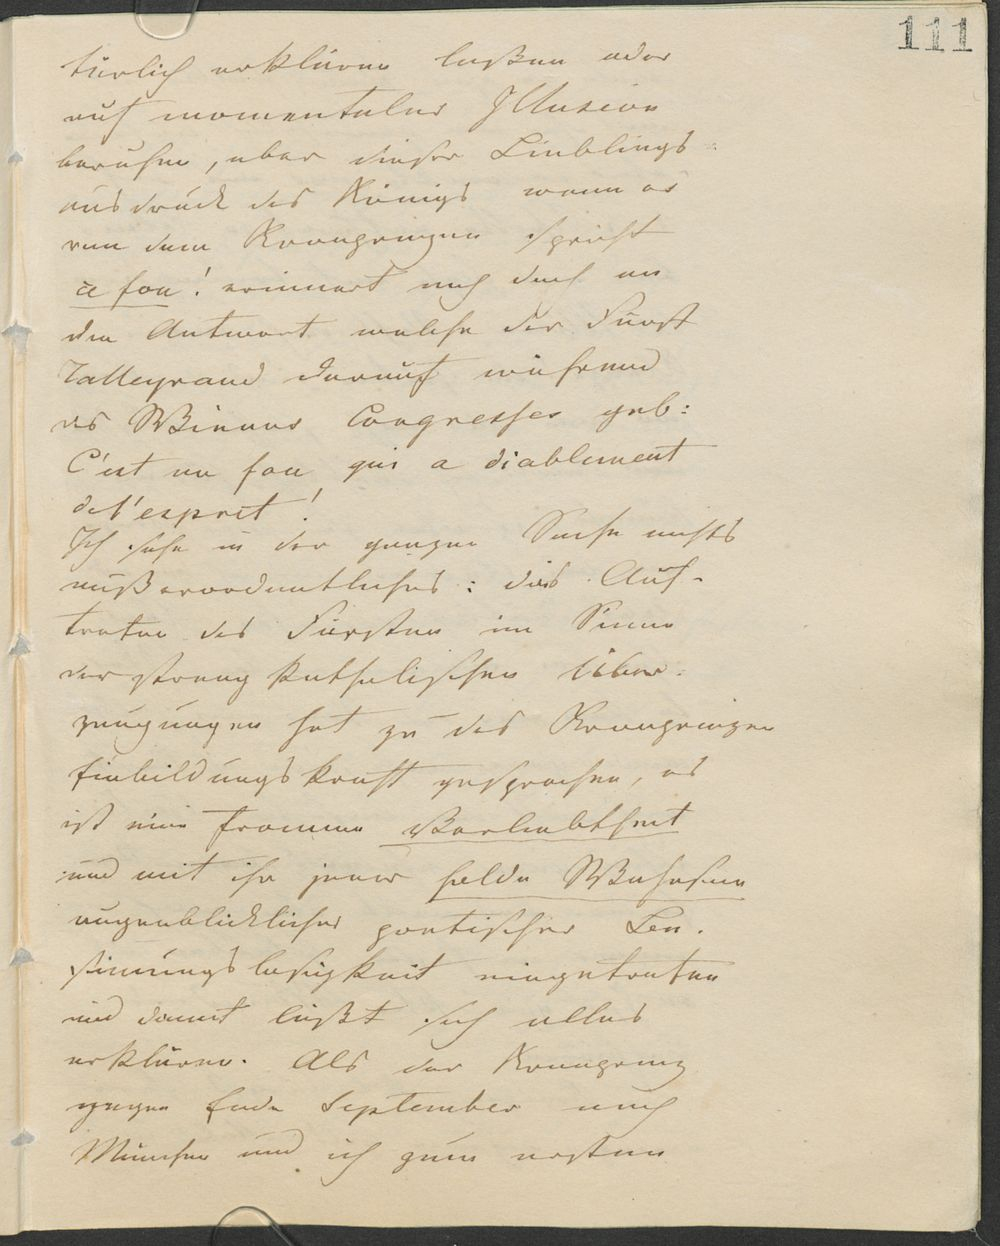 111
türlich erklären laßen oder
auf momentaler Illusion
beruhen, aber dieser Lieblings
ausdruck des Königs wenn er
von dem Kronprinzen spricht
ce fou! erinnert mich doch an
die Antwort welche der Fürst
Talleyrand darauf während
des Wiener Congresses gab:
C'est un fou qui a diablement
de l'esprit!
Ich sehe in der ganzen Sache nichts
außerordentliches: das Auf-
treten des Fürsten im Sinne
der streng katholischen Über-
zeugungen hat zu des Kronprinzen
Einbildungskraft gesprochen, es
ist eine fromme Verliebtheit
und mit ihr jener holde Wahnsinn
augenblicklicher poetischer Be-
sinnungslosigkeit eingetreten
und damit läßt sich alles
erklären. Als der Kronprinz
gegen Ende September nach
München und ich zum ersten